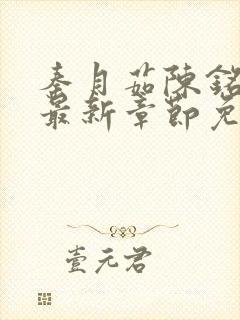 秦月茹陳銘
最新章節免
壹元君